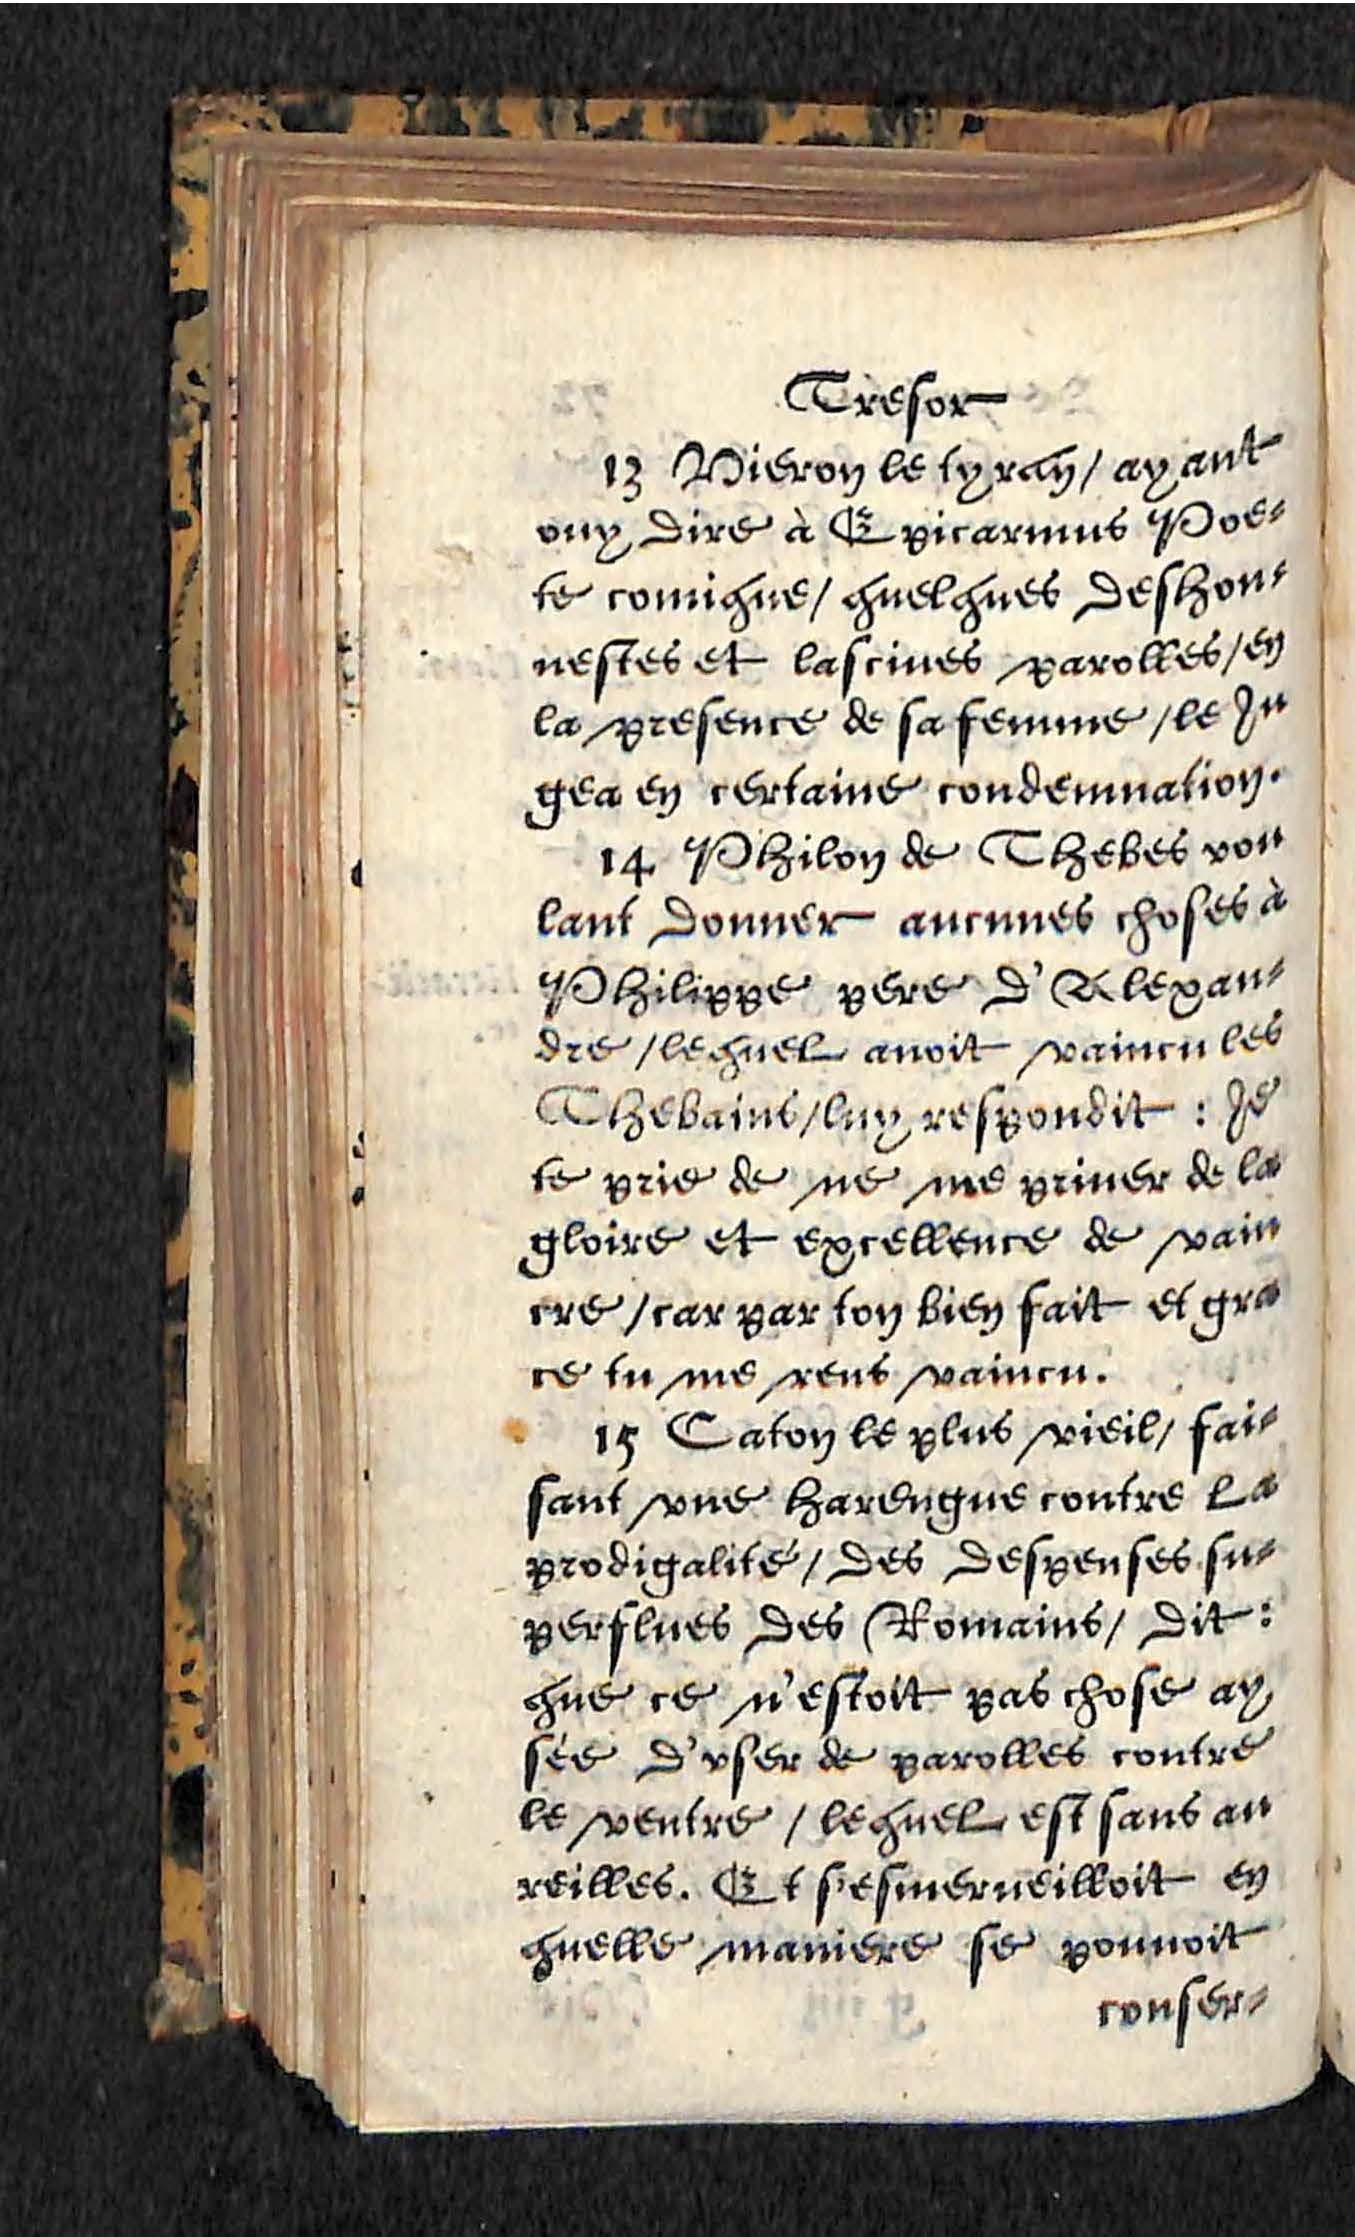 Tresor
13 Hieron le tyran/ ayant
ouy dire à Epicarmus Poe-
te comique/ quelques deshon-
nestes et lasciues parolles/ en
la presence de sa femme/ le Iu
gea en certaine condemnation.
14 Philon de Thebes vou
lant donner aucunes choses à
Philippe pere d'Alexan-
dre/ lequel auoit vaincu les
Thebains/ luy respondit : Je
te prie de ne me priuer de la
gloire et excellence de vain
cre/ car par ton bien fait et gra
ce tu me rens vaincu.
15 Caton le plus vieil/ fai-
sant vne harengue contre la
prodigalité/ des despenses su-
perflues des Romains/ dit:
que ce n'estoit pas chose ay
sée d'vser de parolles contre
le ventre/ lequel est sans au
reilles. Et s'esmerueilloit en
quelle maniere se pouuoit
conser-